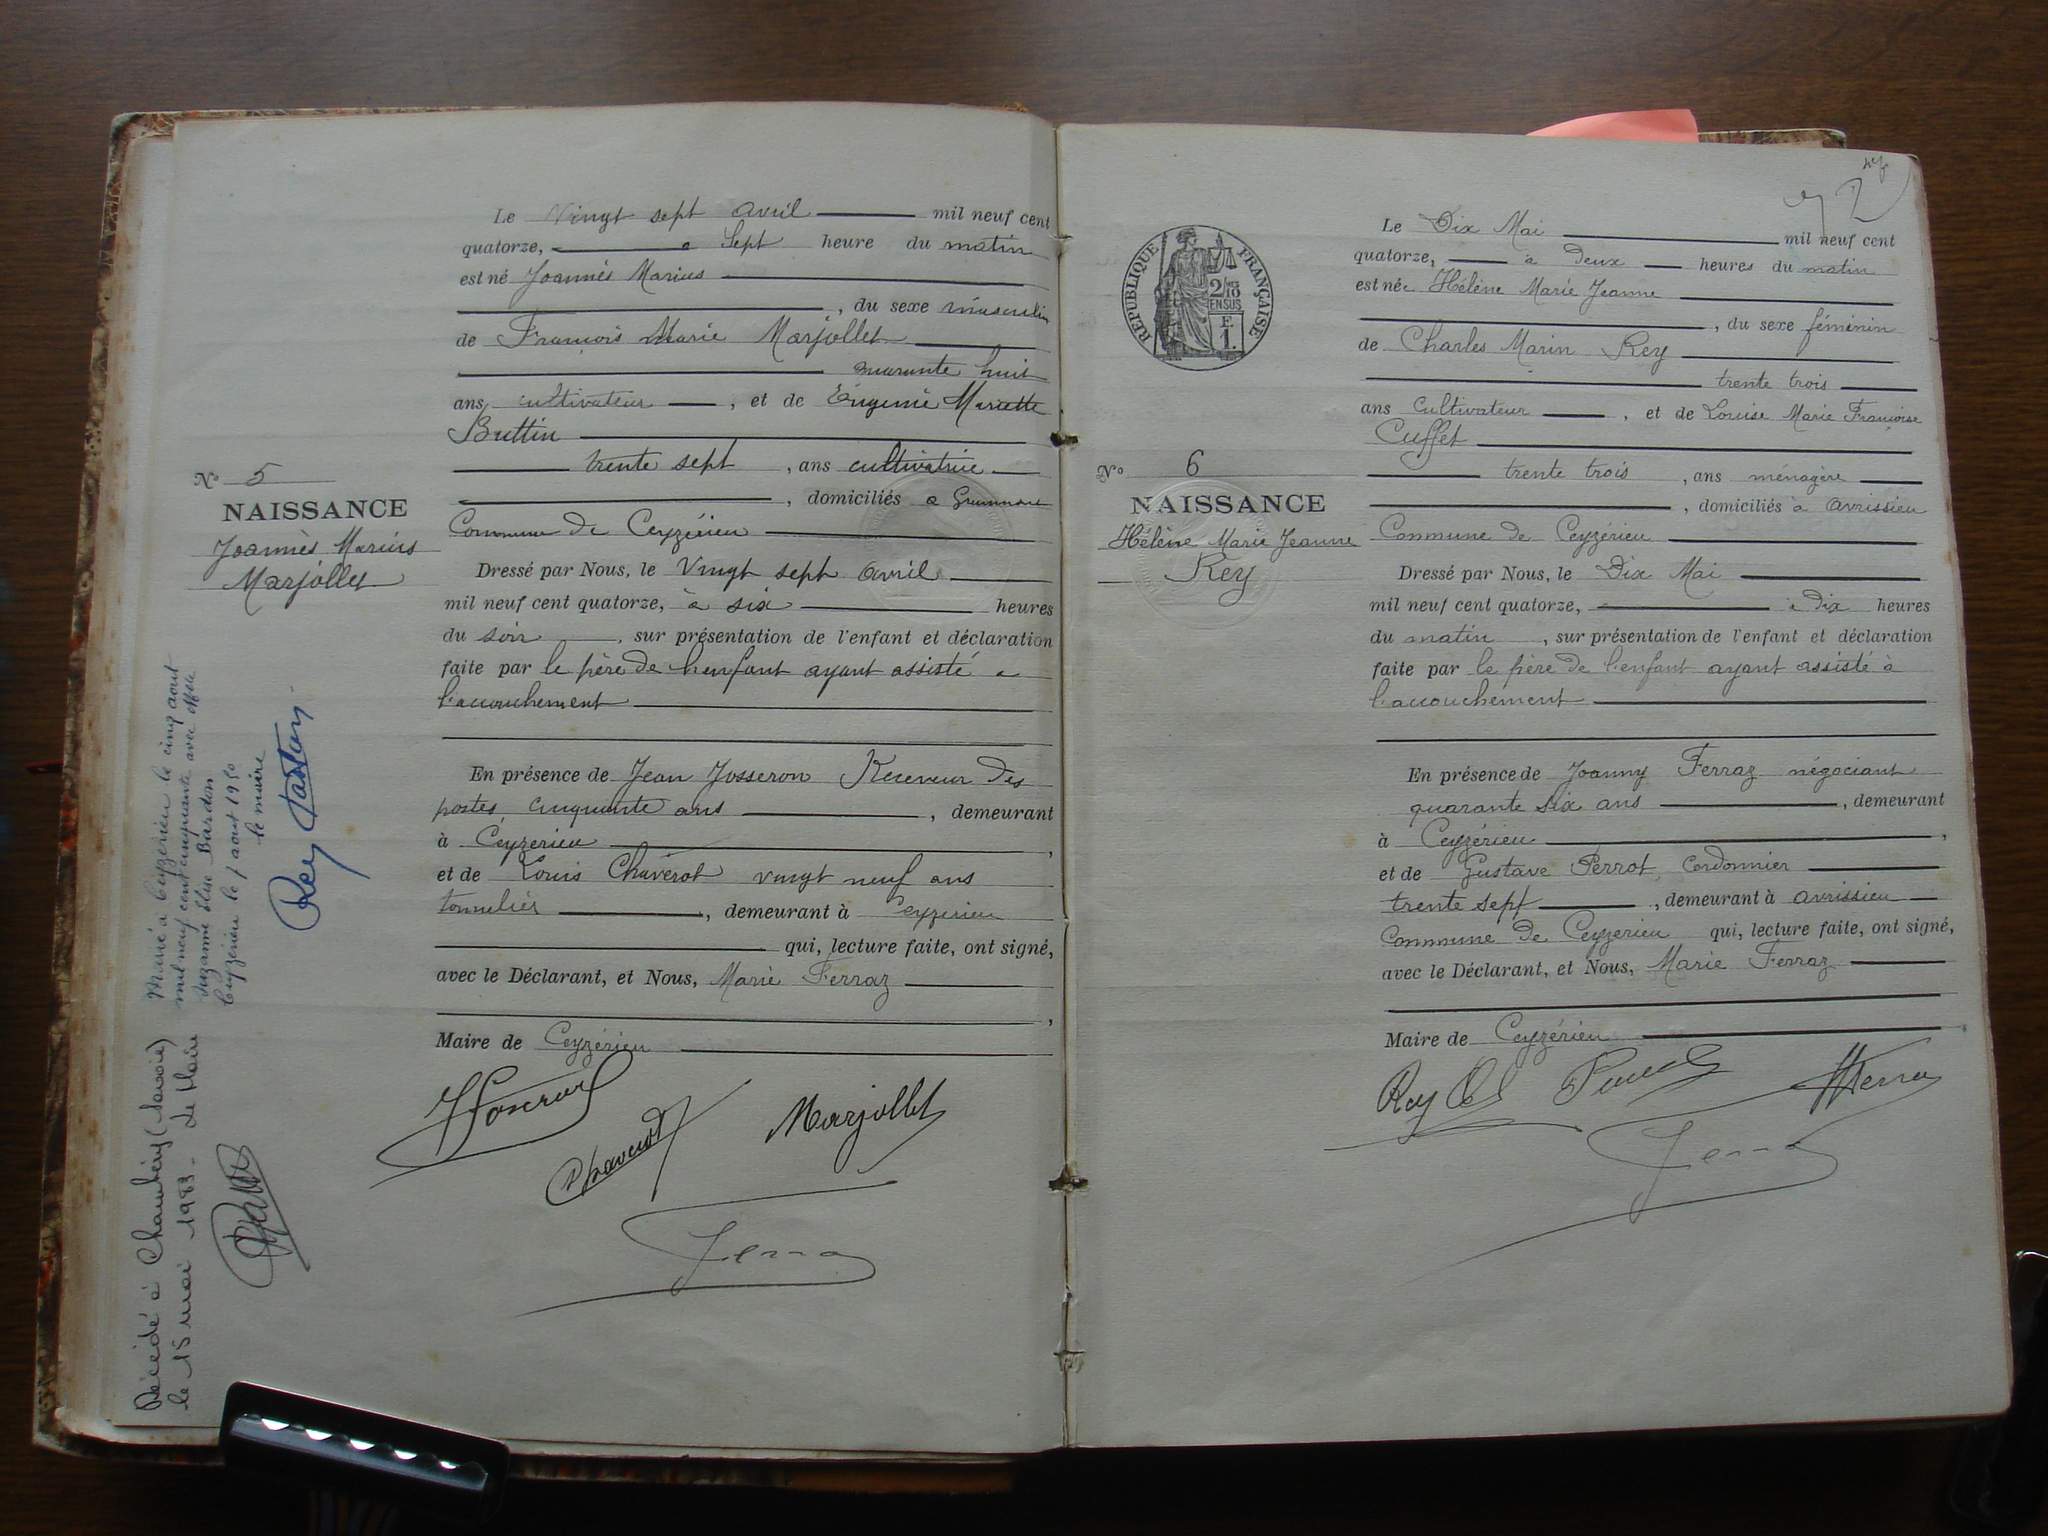 Le Vingt sept avril mil neuf cent
quatorze, à Sept heure du matin
est né Joannès Marius
, du sexe masculin
de François Marie Marjollet
quarante huit
ans, cultivateur , et de Eugénie Mariette
Buttin
trente sept , ans cultivatrice
, domiciliés à
Commune de Ceyzérieu
Dressé par Nous, le Vingt sept avril
mil neuf cent quatorze, à six heures
du soir , sur présentation de l'enfant et déclaration
faite par le père de l'enfant ayant assisté à
l'accouchement
En présence de Jean Josseron Receveur des
postes, cinquante ans , demeurant
à Ceyzérieu ,
et de Louis Chaverot vingt neuf ans
tonnelier , demeurant à Ceyzérieu
qui, lecture faite, ont signé,
avec le Déclarant, et Nous, Marie Ferraz
,
Maire de Ceyzérieu
Josseron
Chaverot
Marjollet
Ferraz
N° 5
NAISSANCE
Joannès Marius
Marjollet
Marié à Ceyzérieu le cinq aout
mil neuf cent cinquante avec
Suzanne Elise Bardon
Ceyzérieu le 7 aout 1950
le maire
Rey Gaston
Décédé à Chambéry (Savoie)
le 15 mai 1983 - Le Maire
RÉPUBLIQUE FRANÇAISE
2/10
EN SUS
F.
1.
N° 6
NAISSANCE
Hélène Marie Jeanne
Rey
Le Dix Mai mil neuf cent
quatorze, à Deux heures du matin
est née Hélène Marie Jeanne
, du sexe féminin
de Charles Marin Rey
trente trois
ans cultivateur , et de Louise Marie Françoise
Cuffet
trente trois , ans ménagère
, domiciliés à avrissieu
Commune de Ceyzérieu
Dressé par Nous, le Dix Mai
mil neuf cent quatorze, à Dix heures
du matin , sur présentation de l'enfant et déclaration
faite par le père de l'enfant ayant assisté à
l'accouchement
En présence de Joanny Ferraz négociant
quarante six ans , demeurant
à Ceyzérieu ,
et de Gustave Perrot, cordonnier
trente sept , demeurant à avrissieu
Commune de Ceyzerieu qui, lecture faite, ont signé,
avec le Déclarant, et Nous, Marie Ferraz
Maire de Ceyzérieu
Rey
Ferraz